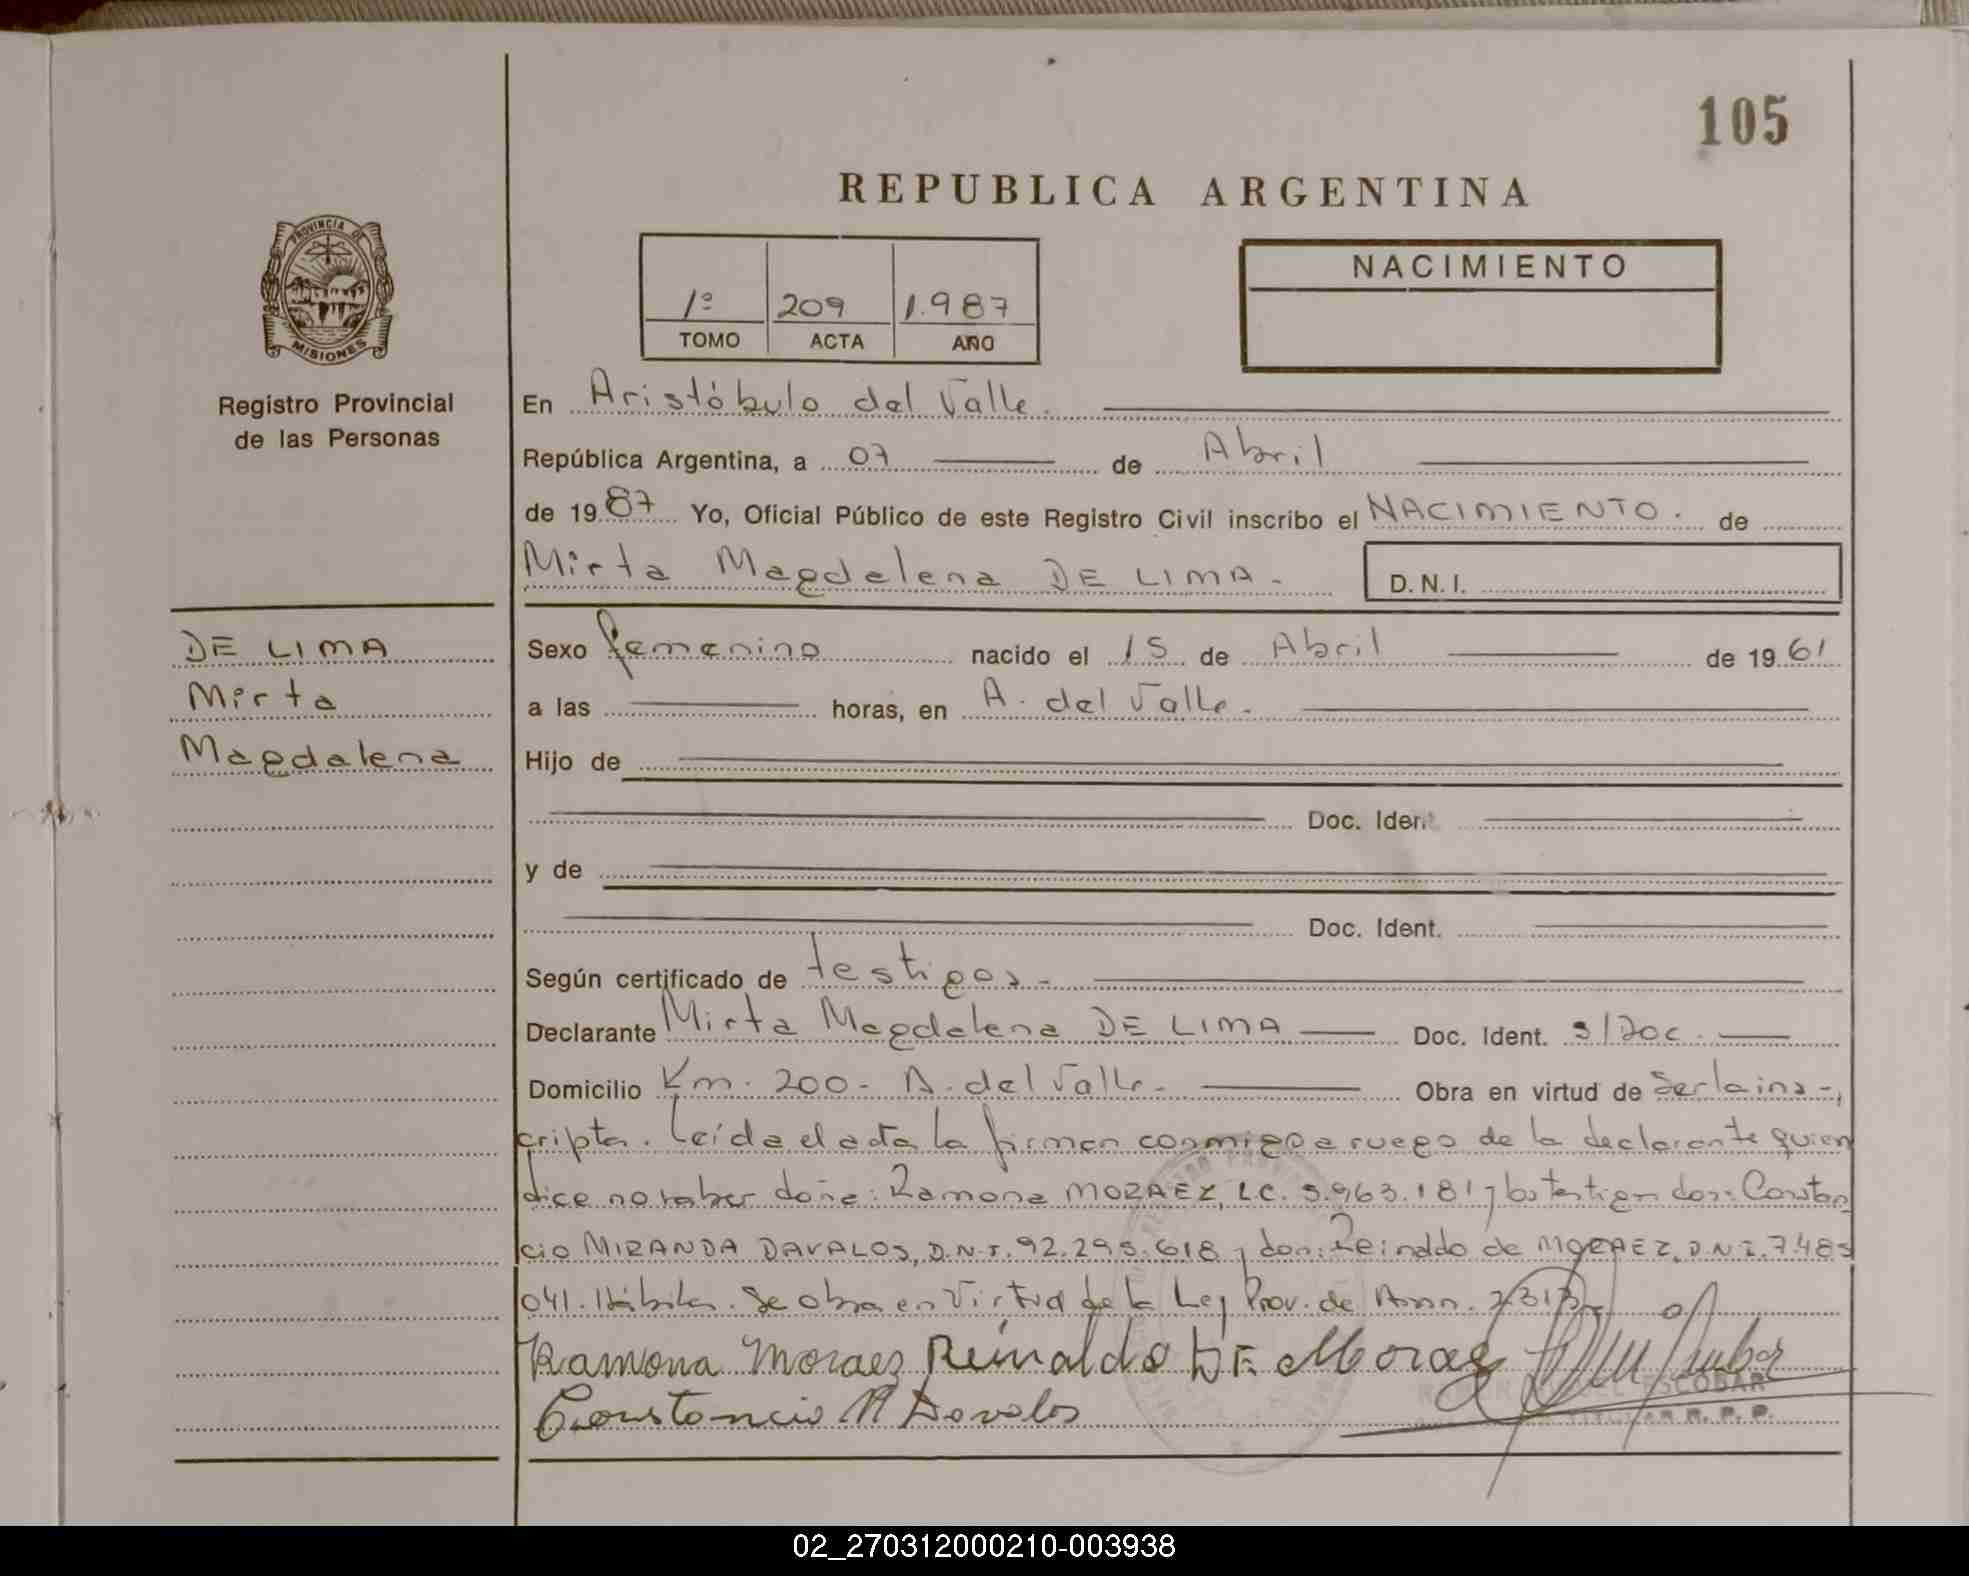 105
REPUBLICA ARGENTINA
PROVINCIA DE
MISIONES
Registro Provincial
de las Personas
1º 209 1.987
TOMO ACTA AÑO
NACIMIENTO
En Aristóbulo del Valle.
República Argentina, a 07 de Abril
de 1987 Yo, Oficial Público de este Registro Civil inscribo el NACIMIENTO. de
Mirta Magdalena DE LIMA.-
D. N. I.
DE LIMA
Mirta
Magdalena
Sexo femenino nacido el 15 de Abril de 1961
a las horas, en A. del Valle.-
Hijo de
Doc. Ident
y de
Doc. Ident.
Según certificado de testigos.-
Declarante Mirta Magdalena DE LIMA Doc. Ident. s/Doc.
Domicilio Km. 200.- A. del Valle.- Obra en virtud de Ser la ins-,
cripta. Leída el acta la firman conmigo a ruego de la declarante quien
dice no saber doña: Ramona MORAEZ, L.C. 5.963.181 y los testigos don: Constan
cio MIRANDA DAVALOS, D.N.I. 92.295.618 y don: Reinaldo de MORAEZ, D.N.I. 7.485
041. Hábiles. Se obra en Virtud de la Ley Prov. de Amn.
Ramona Moraez Reinaldo DE Moraez
Constancio M Davalos
ESCOBAR
TITULAR R. P. P.
02_270312000210-003938